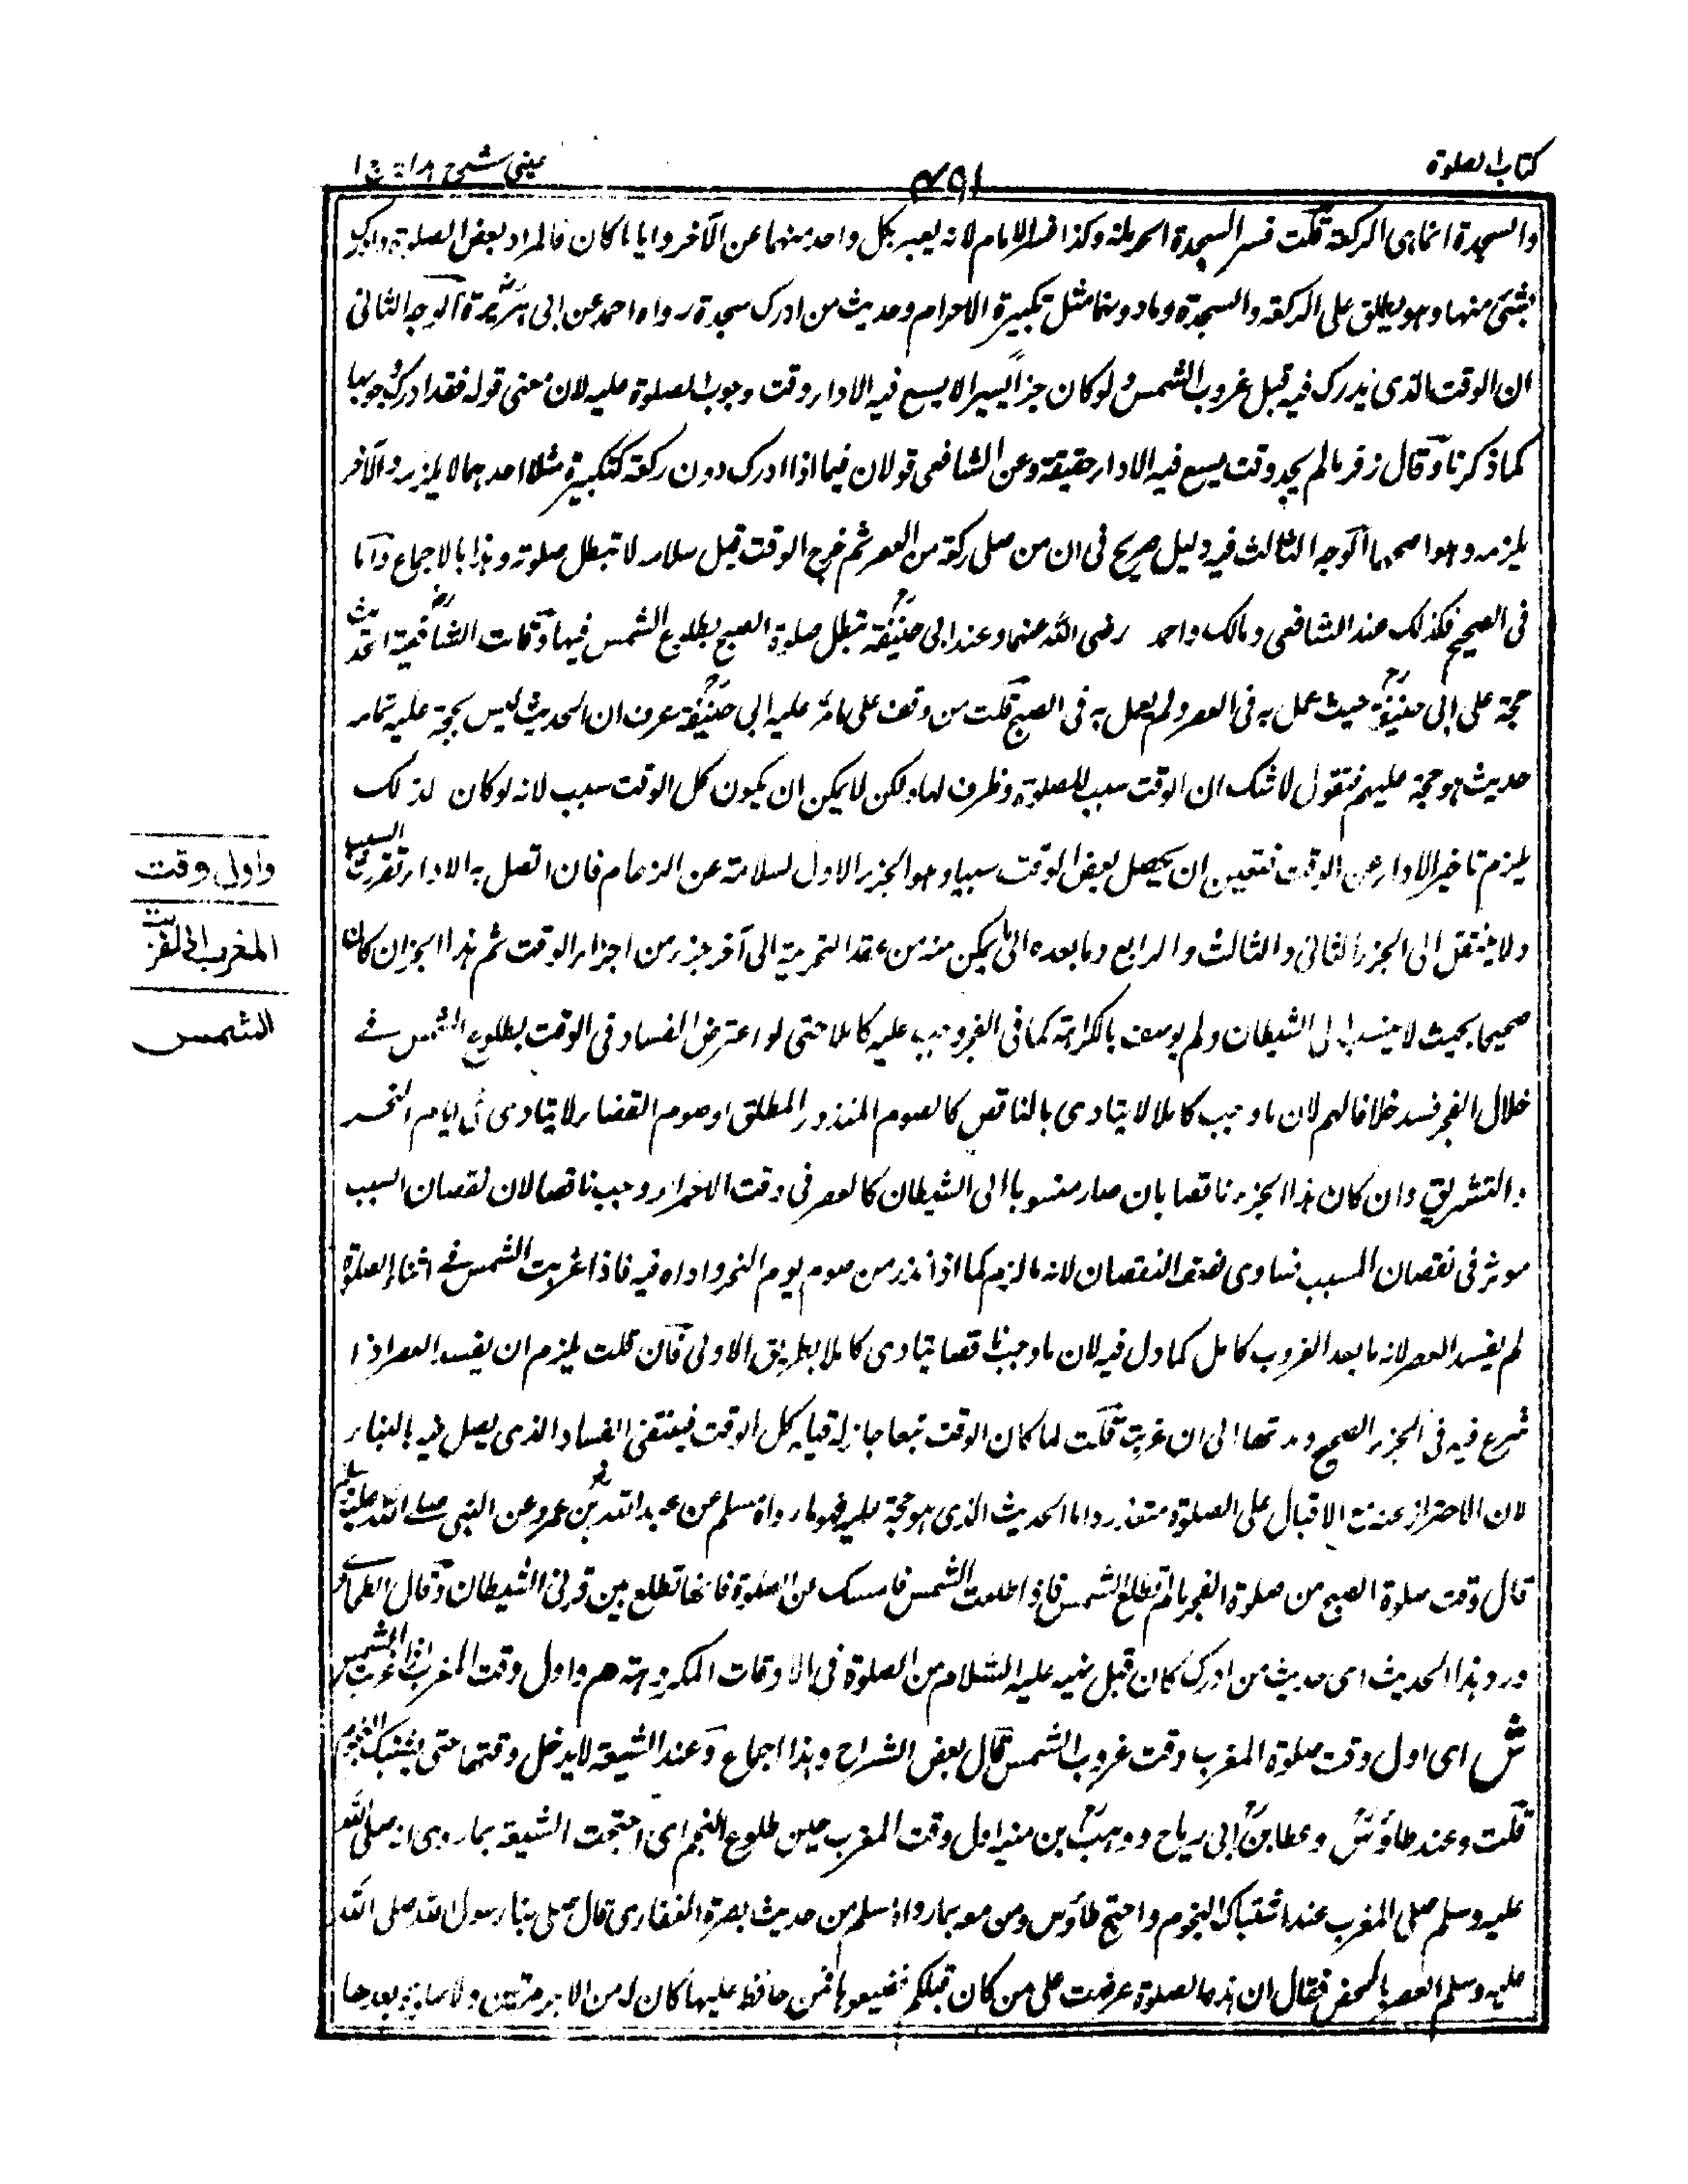 كتاب الصلوة
۴۹۱
عينى شرح هداية ج ١
والسجدة انما هى الركعة قلت فسر السجدة احرملة وكذا فسر الامام لانه يعبر بكل واحد منهما عن الآخر وايا ما كان فالمراد بعض الصلوة وادرك
بشئ منها وهو يطلق على الركعة والسجدة وما دونها مثل تكبيرة الاحرام وحديث من ادرك سجدة رواه احمد عن ابى هريرة الوجه الثانى
ان الوقت الذى يدرك فيه قبل غروب الشمس ولو كان جزأ يسيرا لا يسع فيه الاداء وقت وجوب الصلوة عليه لان معنى قوله فقد ادرك وجوبها
كما ذكرنا وقال زفر ما لم يجد وقت يسع فيه الاداء حقيقة وعن الشافعى قولان فيما اذا ادرك دون ركعة كتكبيرة مثلا احدهما لا يلزمه والآخر
يلزمه وهو اصحهما الوجه الثالث فيه دليل صريح فى ان من صلى ركعة من العصر ثم خرج الوقت قبل سلامه لا تبطل صلوته وهذا بالاجماع واما
فى الصبح فكذلك عند الشافعى ومالك واحمد رضى الله عنهما وعند ابى حنيفة تبطل صلوة الصبح بطلوع الشمس فيها وقالت الشافعية الحديث
حجة على ابى حنيفة حيث عمل به فى العصر ولم يعمل به فى الصبح قلت من وقف على ما مر عليه ابى حنيفة عرف ان الحديث ليس بحجة عليه ثمامه
حديث هو حجة عليهم فنقول لا شك ان الوقت سبب للصلوة وظرف لها ولكن لا يمكن ان يكون كل الوقت سبب لانه لو كان لذلك
يلزم تاخير الاداء عن الوقت فتعين ان يحصل بعض الوقت سببا وهو الجزء الاول لسلامته عن الزحام فان اتصل به الاداء تقررت السببية
ولا ينتقل الى الجزء الثانى والثالث والرابع وما بعده الى ما يمكن منه من عقد التحريمة الى آخر جزء من اجزاء الوقت ثم هذا الجزء ان كان
صحيحا بحيث لا ينسب الى الشيطان ولم يوصف بالكراهة كما فى الفجر وجب عليه كاملا حتى لو اعترض الفساد فى الوقت بطلوع الشمس فے
خلال الفجر فسد خلافا لهم لان ما وجب كاملا لا يتادى بالناقص كالصوم المنذور المطلق او صوم القضاء لا يتادى فى ايام النحر
والتشريق وان كان هذا الجزء ناقصا بان صار منسوبا الى الشيطان كالعصر فى وقت الاحمرار وجب ناقصا لان نقصان السبب
موثر فى نقصان المسبب فيتادى بصفة النقصان لانه ما لزم كما اذا نذر من صوم يوم النحر واداه فيه فاذا غربت الشمس فے اثناء الصلوة
لم يفسد العصر لانه ما بعد الغروب كامل كما دل فيه لان ما وجب ناقصا يتادى كاملا بطريق الاولى فان قلت يلزم ان يفسد العصر اذا
شرع فيه فى الجزء الصحيح ومدتها الى ان غربت قلت لما كان الوقت تبعا جاز له قيامه كل الوقت فينتفى الفساد الذى يصل فيه بالبناء
لان الاحتراز عنه مع الاقبال على الصلوة متعذر واما الحديث الذى هو حجة عليهم فهو ما رواه مسلم عن عبد الله بن عمرو عن النبى صلے الله عليه وسلم
قال وقت صلوة الصبح من صلوة الفجر ما لم تطلع الشمس فاذا طلعت الشمس فامسك عن الصلوة فانها تطلع بين قرنى الشيطان وقال الطحاوے
ورود هذا الحديث اى حديث من ادرك كان قبل نهيه عليه السلام من الصلوة فى الاوقات المكروهة هم واول وقت المغرب اذا غربت الشمس
ش اى اول وقت صلوة المغرب وقت غروب الشمس قال بعض الشراح وهذا اجماع وعند الشيعة لا يدخل وقتها حتى يشتبك النجوم
قلت وعند طاوس وعطا بن ابى رباح ووهب بن منبه اول وقت المغرب حين طلوع النجم اى احتجت الشيعة بما روى انه صلى الله
عليه وسلم صلى المغرب عند اشتباك النجوم واحتج طاؤس ومن معه بما رواه مسلم من حديث بصرة الغفارى قال صلى بنا رسول الله صلى الله
عليه وسلم العصر بالمحض فقال ان هذه الصلوة عرضت على من كان قبلكم فضيعوها فمن حافظ عليها كان له من الاجر مرتين ولا صلوة بعدها
واول وقت
المغرب اذا غربت
الشمس